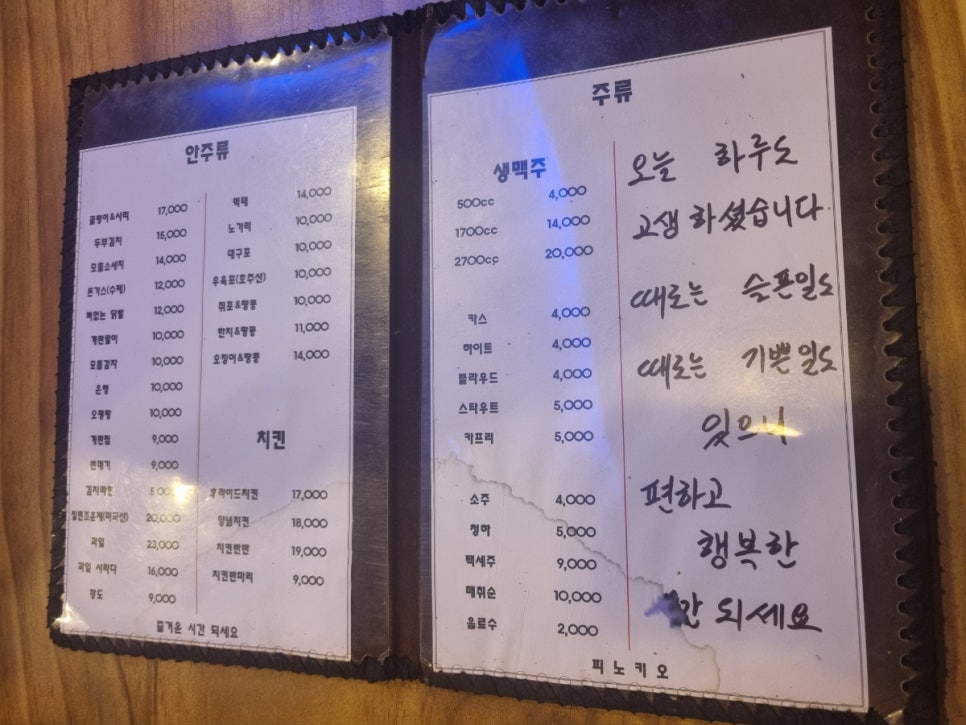 안주류
골뱅이&사리 17,000
두부김치 15,000
모듬소세지 14,000
돈가스(수제) 12,000
뼈없는 닭발 12,000
계란말이 10,000
모듬감자 10,000
은행 10,000
오뎅탕 10,000
계란찜 9,000
번데기 9,000
김치라면 5,000
칠면조훈제(미국산) 20,000
과일 23,000
과일 사라다 16,000
황도 9,000
먹태 14,000
노가리 10,000
대구포 10,000
우육포(호주산) 10,000
쥐포&땅콩 10,000
한치&땅콩 11,000
오징어&땅콩 14,000
치킨
후라이드치킨 17,000
양념치킨 18,000
치킨반반 19,000
치킨반마리 9,000
즐거운 시간 되세요
주류
생맥주
500cc 4,000
1700cc 14,000
2700cc 20,000
카스 4,000
하이트 4,000
클라우드 4,000
스타우트 5,000
카프리 5,000
소주 4,000
청하 5,000
백세주 9,000
매취순 10,000
음료수 2,000
오늘 하루도
고생하셨습니다.
때로는 슬픈일도
때로는 기쁜일도
있으니
편하고
행복한
되세요
피노키오